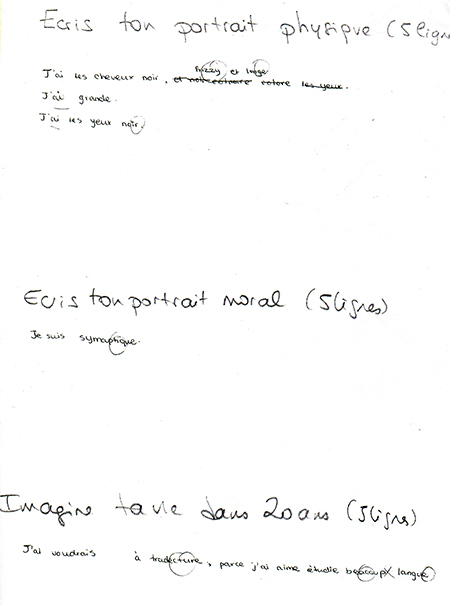 Ecris ton portrait physique (5 lign
frizzy et large
J'ai les cheveux noir, et noir colore les yeux.
J'ai grande.
J'ai les yeux noir.
Ecris ton portrait moral (5 lignes)
Je suis symaptique.
Imagine ta vie dans 20 ans (5 lignes)
J'ai voudrais à tradecture, parce j'ai aime étudie beaccup langue